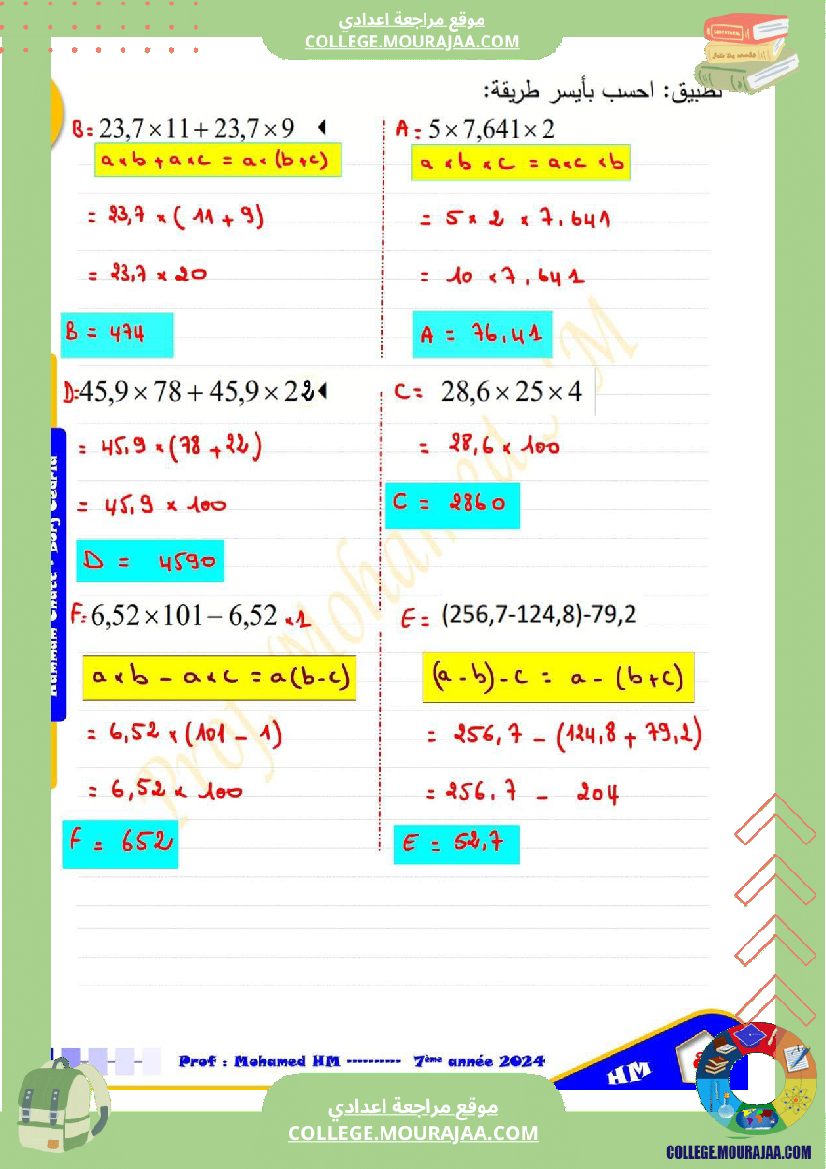 موقع مراجعة اعدادي
COLLEGE.MOURAJAA.COM
تطبيق: احسب بأيسر طريقة:
A = 5×7,641×2
a × b × c = a×c×b
= 5 × 2 × 7,641
= 10 × 7,641
A = 76,41
B = 23,7×11+23,7×9
a×b + a×c = a×(b+c)
= 23,7 × (11 + 9)
= 23,7 × 20
B = 474
C = 28,6×25×4
= 28,6 × 100
C = 2860
D=45,9×78+45,9×22
= 45,9 × (78 + 22)
= 45,9 × 100
D = 4590
E = (256,7-124,8)-79,2
(a - b) - c = a - (b+c)
= 256,7 - (124,8 + 79,2)
= 256,7 - 204
E = 52,7
F= 6,52×101−6,52 ×1
a×b - a×c = a(b-c)
= 6,52 × (101 - 1)
= 6,52 × 100
F = 652
Prof. Mohamed HM
Prof : Mohamed HM ---------- 7ème année 2024
HM
موقع مراجعة اعدادي
COLLEGE.MOURAJAA.COM
COLLEGE.MOURAJAA.COM